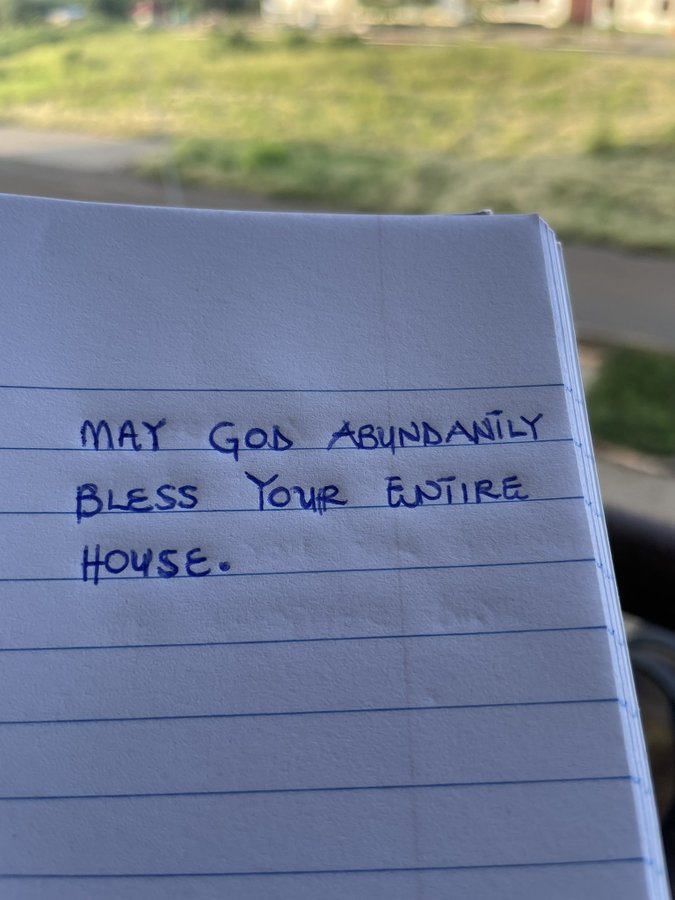 MAY GOD ABUNDANTLY
BLESS YOUR ENTIRE
HOUSE.